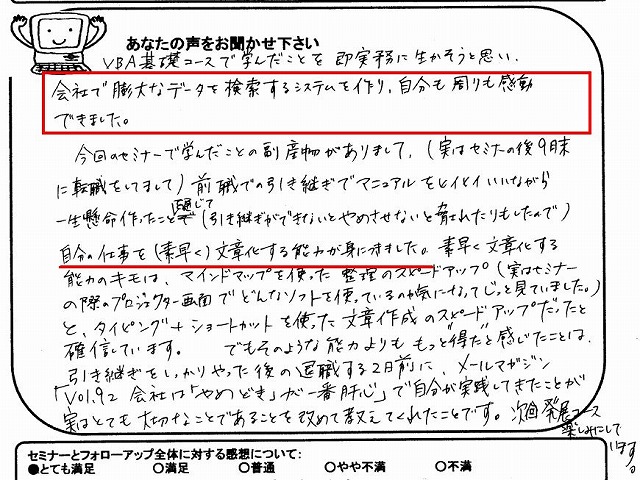 あなたの声をお聞かせ下さい
VBA基礎コースで学んだことを即実務に生かそうと思い、
会社で膨大なデータを検索するシステムを作り、自分も周りも感動
できました。
今回のセミナーで学んだことの副産物がありまして、(実はセミナーの後9月末
に転職をしてまして)前職での引き継ぎでマニュアルをヒイヒイいいながら
一生懸命作ったことを通じて(引き継ぎができないとやめさせないと脅されたりもしたので)
自分の仕事を(素早く)文章化する能力が身に付きました。素早く文章化する
能力のキモは、マインドマップを使った整理のスピードアップ(実はセミナー
の際のプロジェクター画面でどんなソフトを使っているのか気になってじっと見ていました。)
と、タイピング+ショートカットを使った文章作成のスピードアップだったと
確信しています。でもそのような能力よりももっと"得た"と感じたことは、
引き継ぎをしっかりやった後の退職する2日前に、メールマガジン
「Vol.92 会社は「やめどき」が一番肝心」で自分が実践してきたことが
実はとても大切なことであることを改めて教えてくれたことです。次回発展コース
楽しみにして
います。
セミナーとフォローアップ全体に対する感想について:
●とても満足 ○満足 ○普通 ○やや不満 ○不満